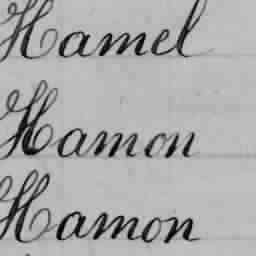 Hamel
Hamon
Hamon